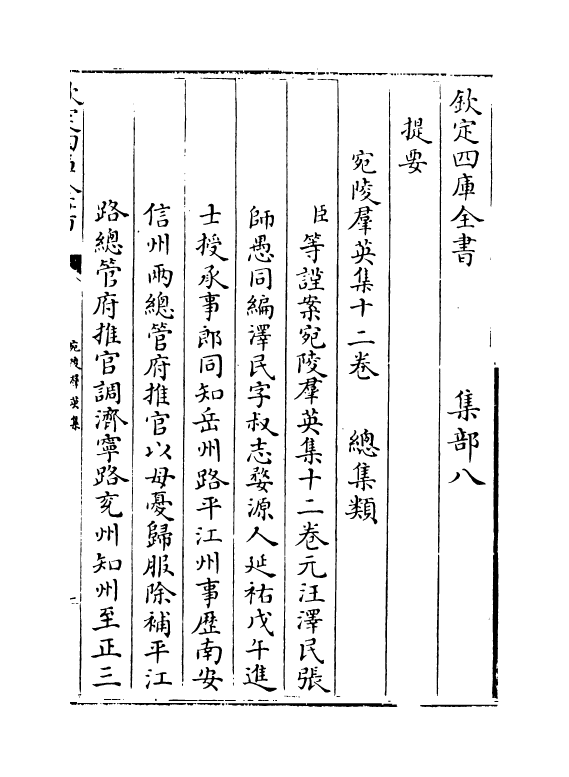 欽定四庫全書　集部八
提要
宛陵羣英集十二卷　總集類
臣等謹案宛陵羣英集十二卷元汪澤民張
師愚同編澤民字叔志婺源人延祐戊午進
士授承事郎同知岳州路平江州事歷南安
信州兩總管府推官以母憂歸服除補平江
路總管府推官調濟寧路兖州知州至正三
宛陵羣英集